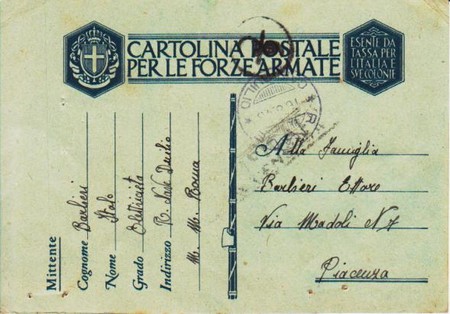 CARTOLINA POSTALE
PER LE FORZE ARMATE
ESENTE DA
TASSA PER
L'ITALIA E
SVE COLONIE
Mittente
Cognome Barbieri
Nome Italo
Grado Elettricista
Indirizzo R. Nave Duilio
M. M. Roma
Alla Famiglia
Barbieri Ettore
Via Madoli N 7
Piacenza